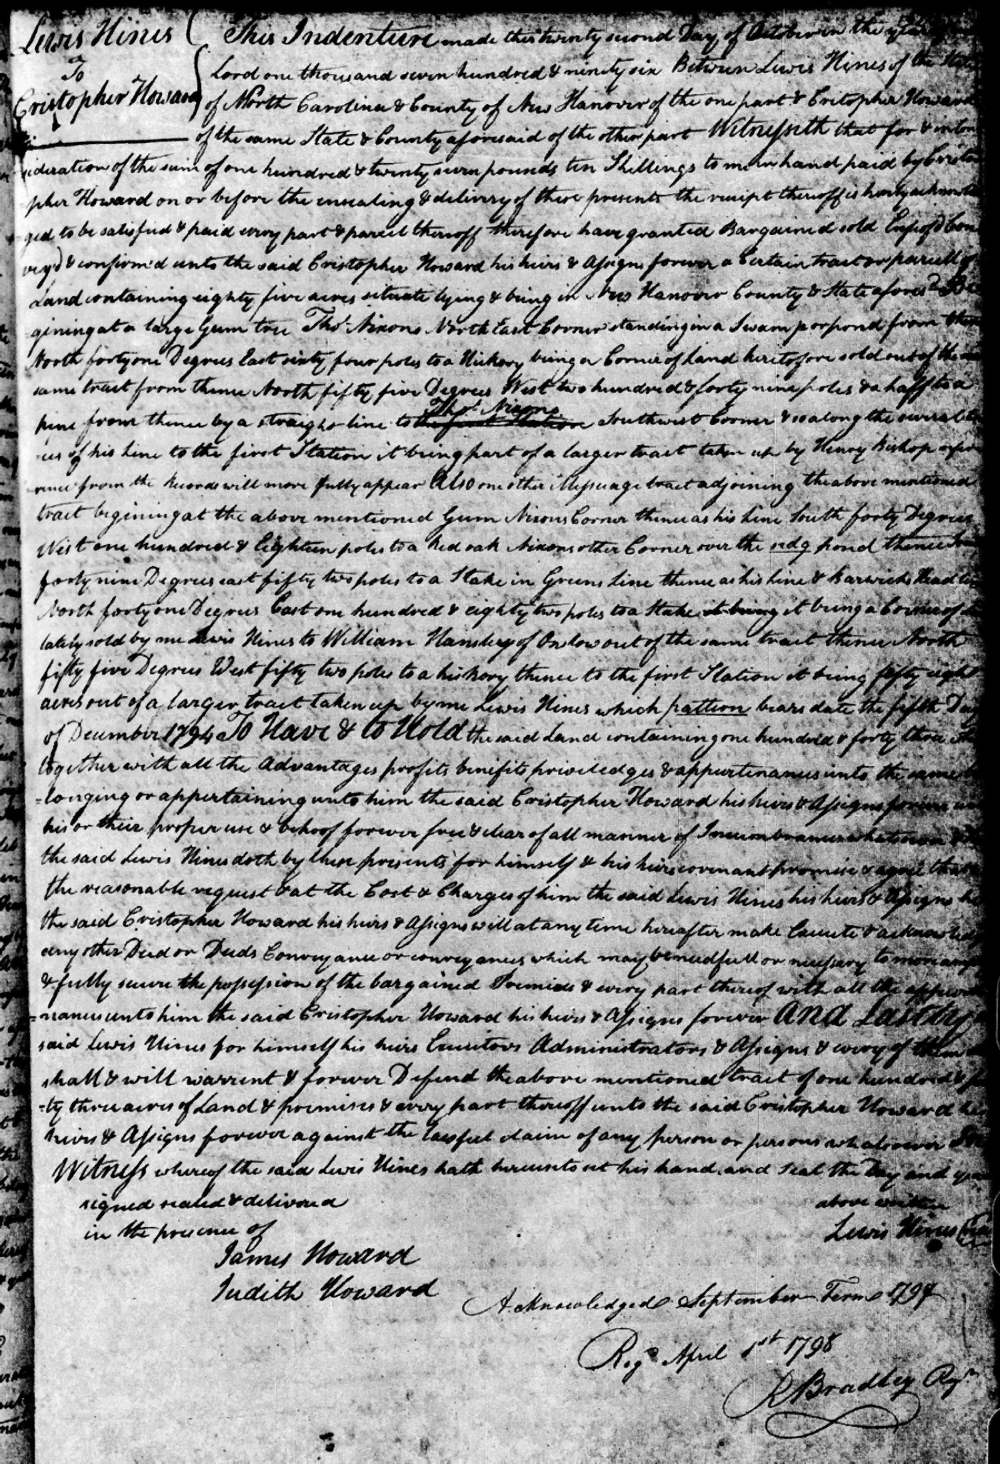 Lewis Hines
To
Cristopher Howard
This Indenture made this twenty second Day of October in the year of
Lord one thousand seven hundred & ninety six Between Lewis Hines of the State
of North Carolina & County of New Hanover of the one part & Cristopher Howard
of the same State & County aforesaid of the other part Witnesseth that for & in Con
sideration of the sum of one hundred & twenty seven pounds ten Shillings to me in hand paid by Cristo
pher Howard on or before the ensealing & delivery of these presents the receipt thereoff is hereby acknowled
ged to be satisfied & paid every part & parcel thereoff therefore have granted Bargained sold Enfeof'd Con
vey'd & confirm'd unto the said Cristopher Howard his heirs & Assigns forever a Certain tract or parcell of
Land containing eighty five acres situate lying & being in New Hanover County & State afores'd Be
gining at a large Gum tree Thos. Nixons North East Corner standing in a Swam por pond from thence
North forty one Degrees East sixty four poles to a Hickory being a Corner of Land heretofore sold out of the
same tract from thence North fifty five Degrees West two hundred & forty nine poles & a haff to a
pine from thence by a straight line to the first Station Thos. Nixons Southwest Corner & so along the several
ces of his line to the first Station it being part of a larger tract taken up by Henry Bishop refer
rence from the Records will more fully appear Also one other Message tract adjoining the above mentioned
tract begining at the above mentioned Gum Nixons Corner thence as his line South forty Degrees
West one hundred & Eighteen poles to a Red oak Nixons other Corner over the sedg pond thence South
forty nine Degrees east fifty two poles to a Stake in Greens line thence as his line & Barwicks Head line
North forty one Degrees East one hundred & eighty two poles to a Stake it being it being a Corner of
lately sold by me Lewis Hines to William Hansley of Onslow out of the same tract thence North
fifty five Degrees West fifty two poles to a hickory thence to the first Station it being fifty eight
acres out of a larger tract taken up by me Lewis Hines which pattion bears date the fifth Day
of December 1794 To Have & to Hold the said Land containing one hundred & forty three
together with all the Advantages profits benifits priviledges & appurtenances unto the same be
=longing or appertaining unto him the said Cristopher Howard his heirs & Assigns forever
his or their proper use & behoof forever free & clear of all manner of Incumbrances whatsoever
the said Lewis Hines doth by these presents for himself & his heirs covenant promise & agree that
the reasonable request & at the Cost & Charges of him the said Lewis Hines his heirs & Assigns
the said Cristopher Howard his heirs & Assigns will at any time hereafter make Execute & acknowledge
any other Deed or Deeds Conveyance or conveyances which may be needfull or nessary to more
& fully secure the possession of the bargained Premices & every part thereof with all the appurte
=nances unto him the said Cristopher Howard his heirs & Assigns forever And Lastly
said Lewis Hines for himself his heirs Executors Administrators & Assigns & every of them
shall & will warrent & forever Defend the above mentioned tract of one hundred & for
=ty three acres of Land & premises & every part thereoff unto the said Cristopher Howard his
heirs & Assigns forever against the lawfull claim of any person or persons whatsoever In
Witness whereof the said Lewis Hines hath hereunto set his hand and Seal the Day and year
signed sealed & delivered above written
in the presence of Lewis Hines
James Howard
Judith Howard
Acknowledged September Term 1797
Reg'd April 1st 1798
R Bradley Regr